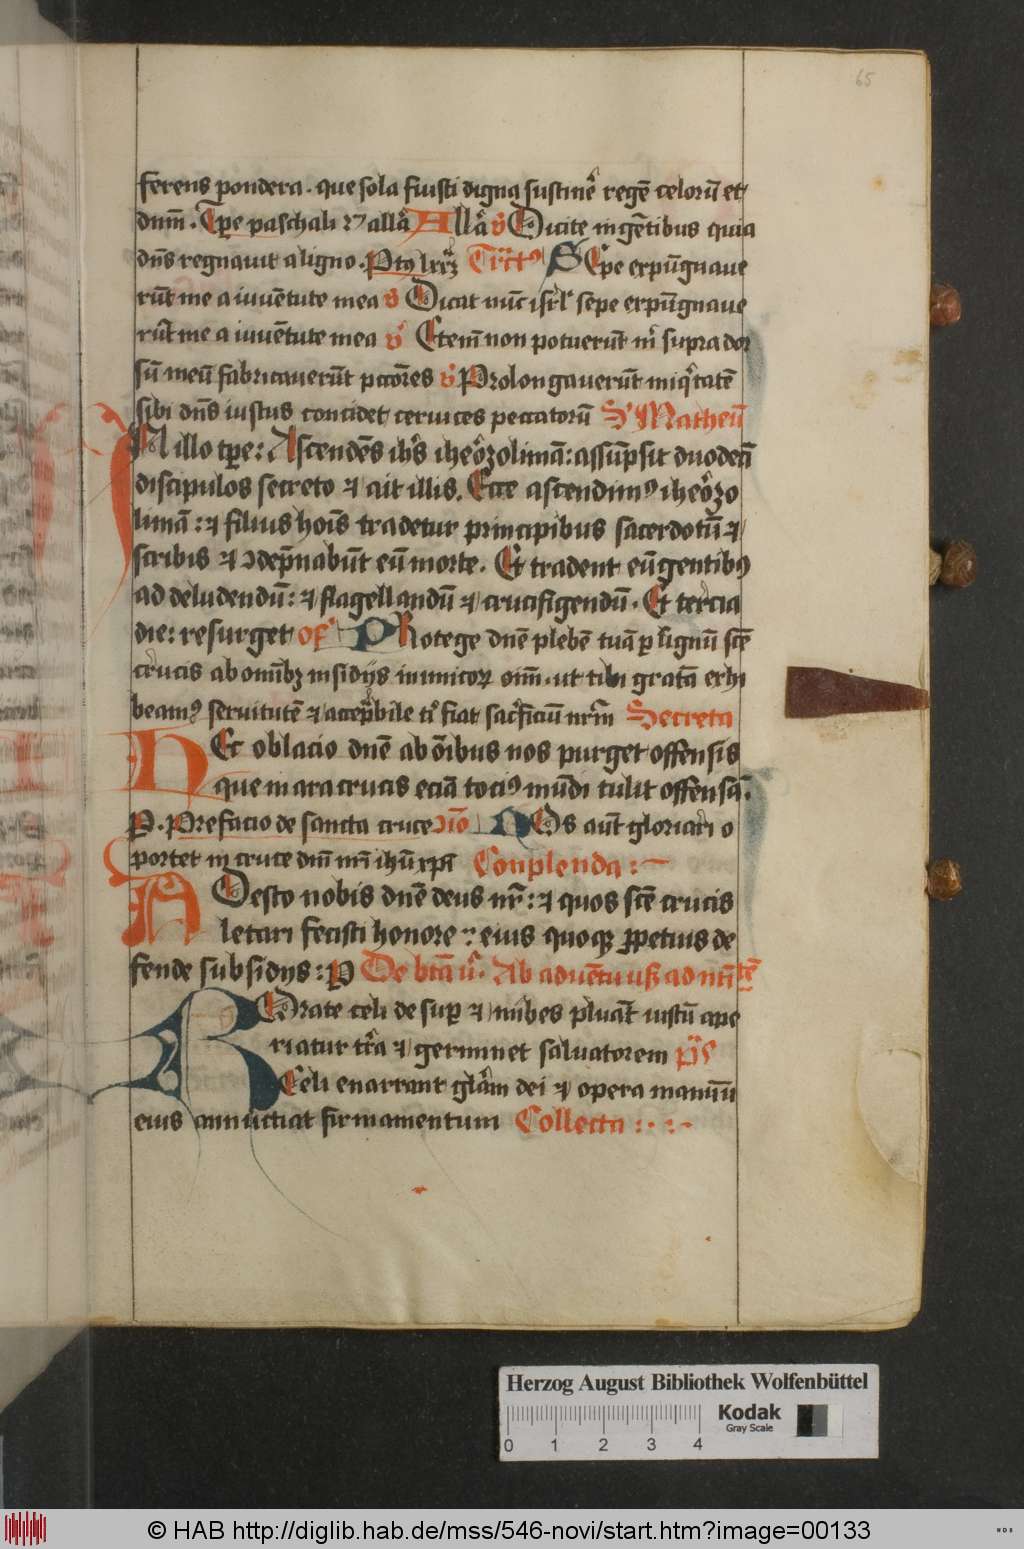 65
ferens pondera. que sola fuisti digna sustinẽ regẽ celorũ et
dnm̃. Tp̲e paschali 2ᵐ allã Allã v̉ Dicite in gẽtibus quia
dñs regnauit a ligno. Sepe expũgnaue
rũt me a iuuẽtute mea v̉ Dicat nũc isrl̃ sepe expũgnaue
rũt me a iuuẽtute mea v̉ Etem̃ non potuerũt m̃ supra dor
sũ meũ fabricauerũt pccõres v̉ Prolongauerũt iniq̃tatẽ
sibi dñs iustus concidet ceruices peccatorũ S' Matheũ
IN illo tp̲e: Ascendẽs ihs̃ iherõzolimã: assũpsit duodeñ
discipulos secreto ⁊ ait illis. Ecce ascendimꝰ iherõzo
limã: ⁊ filius hoĩs tradetur principibus sacerdotũ ⁊
scribis ⁊ ↄdẽpnabũt eũ morte. Et tradent eũ gentibꝰ
ad deludendũ: ⁊ flagellandũ ⁊ crucifigendũ. Et tercia
die: resurget of' PRotege dnẽ plebẽ tuã ꝑ lignũ scẽ
crucis ab omĩbꝫ insidijs inimicoꝝ oim̃. ut tibi gratã exhi
beamꝰ seruitutẽ ⁊ accep̃bile t̃ fiat sac̃ficiũ nrm̃ Secreta
HEc oblacio dnẽ ab õibus nos purget offensis
que in ara crucis eciã tociꝰ mũdi tulit offensã.
P. Prefacio de sancta cruce ↄĩo NOs aũt gloriari o
portet in cruce dñi nrĩ ihũ xp̃i Conplenda :~
ADesto nobis dnẽ deus nr̃: ⁊ quos scẽ crucis
letari fecisti honore : eius quoqꝫ ꝑpetuis de
fende subsidijs: P De btã ṽ. Ab aduẽtu usqꝫ ad natĩtẽ
ROrate celi desuꝑ ⁊ nubes pluãt iustũ ape
riatur tr̃a ⁊ germinet saluatorem p̃s
Celi enarrant glãm dei ⁊ opera manuũ
eius annũctiat firmamentum Collecta :·:~
Herzog August Bibliothek Wolfenbüttel
Kodak
Gray Scale
0 1 2 3 4
© HAB http://diglib.hab.de/mss/546-novi/start.htm?image=00133